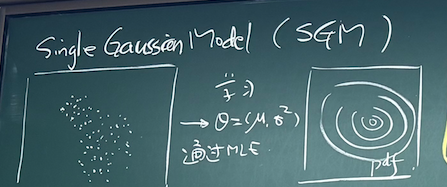 Single Gaussian Model (SGM)
→ θ=(μ, σ²)
通过MLE
pdf